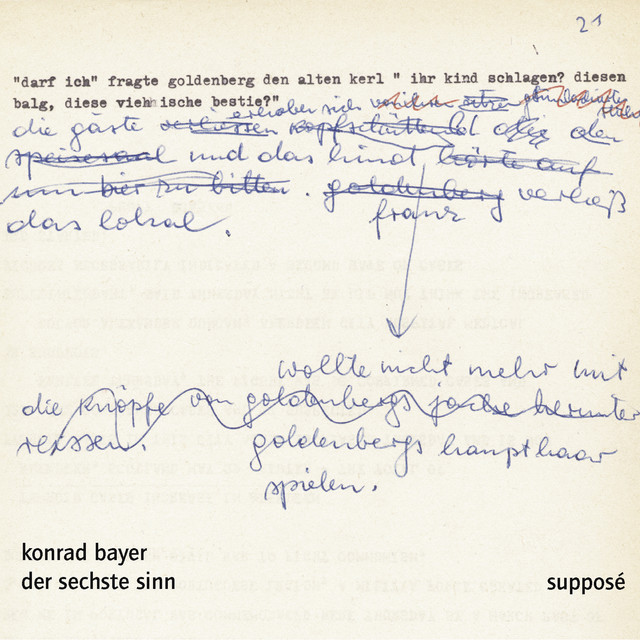 21
"darf ich" fragte goldenberg den alten kerl " ihr kind schlagen? diesen
balg, diese viehische bestie?"
erhoben sich von ihren sitzen
die gäste verliessen kopfschüttelnd den
speisesaal und das kind hörte auf
um bier zu bitten . goldenberg verließ
das lokal. franz
wollte nicht mehr mit
die knöpfe von goldenbergs jacke herunter
reissen. goldenbergs haupthaar
spielen.
konrad bayer
der sechste sinn
supposé